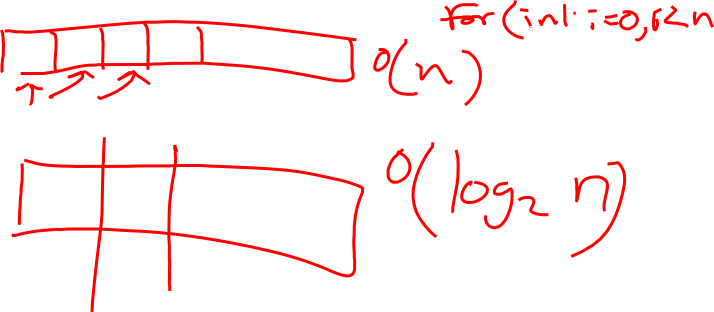 for(int i=0,i<n
O(n)
O(log₂ n)